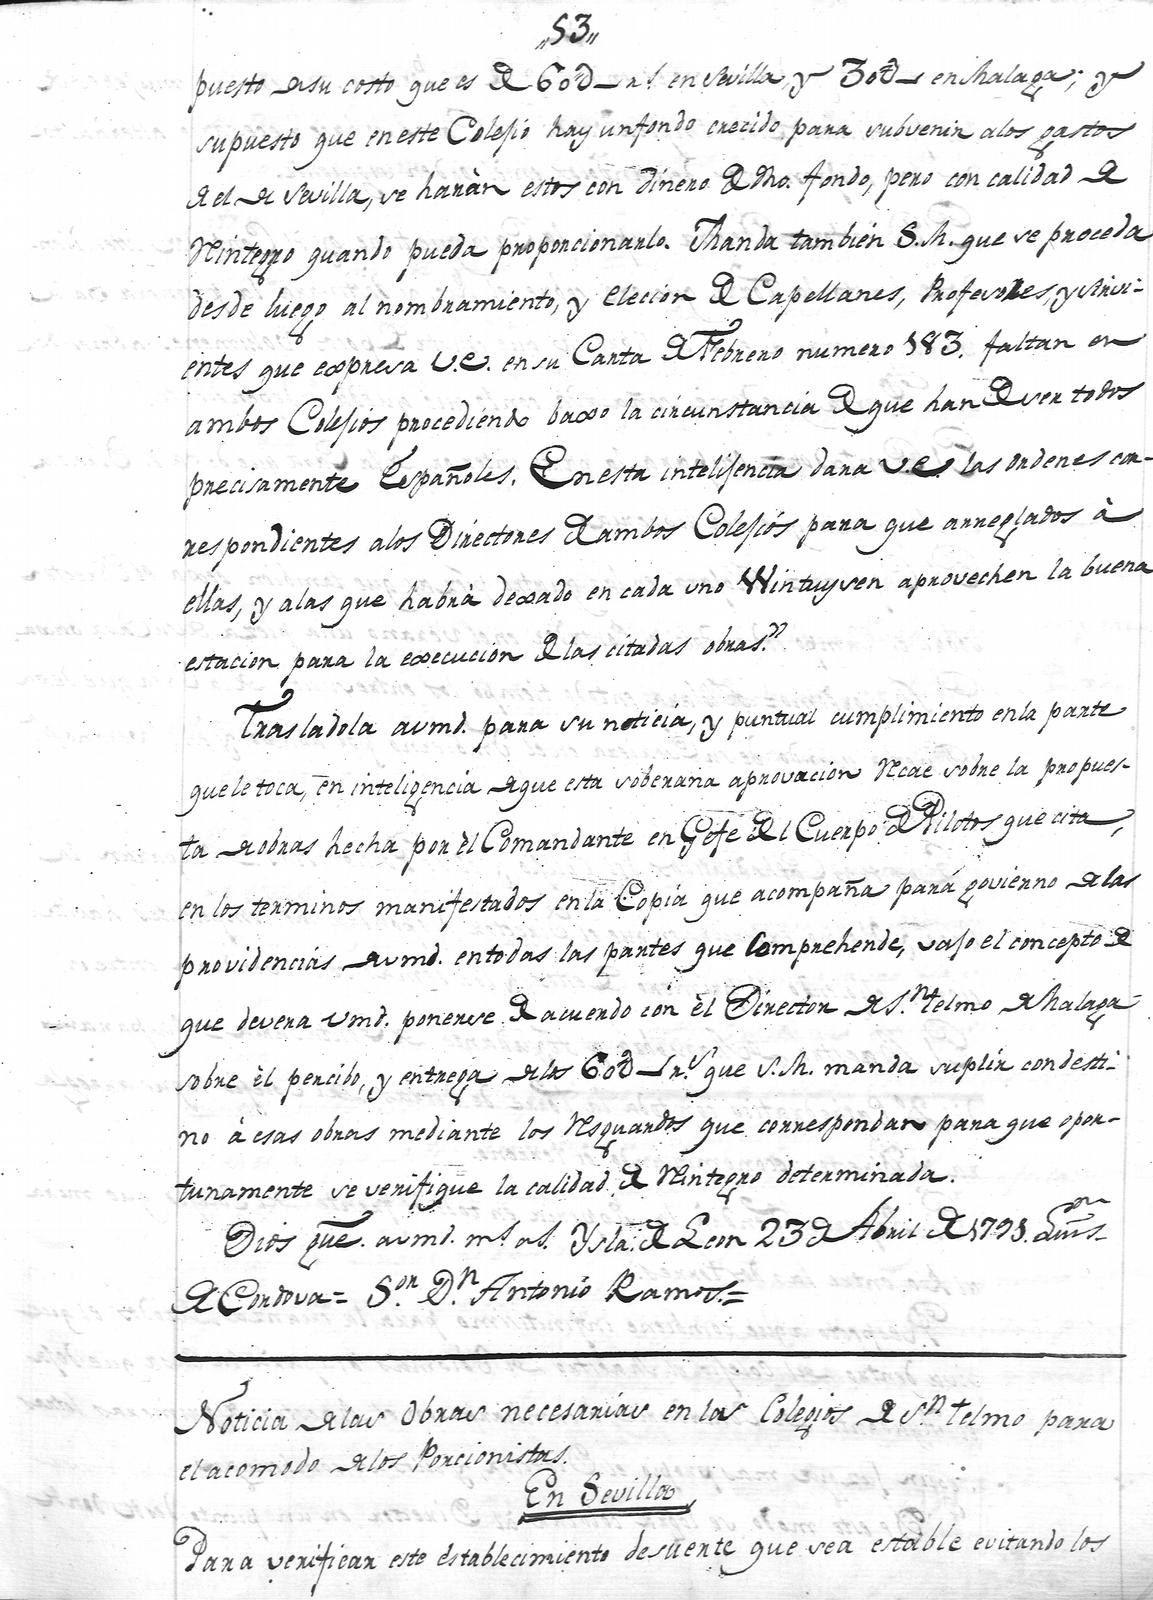 „53„
puesto de su costo que es de 60D r.s en Sevilla, y 30D en Malaga; y
supuesto que en este Colejio hay un fondo crecido para subvenir a los gastos
de el de Sevilla, se haràn estos con dinero de dho. fondo, pero con calidad de
Reintegro quando pueda proporcionarlo. Manda tambien S.M. que se proceda
desde luego al nombramiento, y elecion de Capellanes, Profesores, y sirvi-
entes que expresa V.E. en su Carta de Febrero numero 183. faltan en
ambos Colejios procediendo baxo la circunstancia de que han de ser todos
precisamente Españoles. En esta intelijencia dara V.E. las ordenes cor-
respondientes a los Directores de ambos Colejiós para que arreglados à
ellas, y a las que habrà dexado en cada uno Wintuysen aprovechen la buena
estacion para la execución de las citadas obras.”
Trasladola a vmd. para su noticia, y puntual cumplimiento en la parte
que le toca, en inteligencia de que esta soberana aprovacion Recae sobre la propues-
ta de obras hecha por èl Comandante en Gefe del Cuerpo de Pilotos que cita,
en los terminos manifestados en la Copia que acompaña pará govierno de las
providencias de vmd. en todas las partes que Comprehende, vajo el concepto de
que devera vmd. ponerse de acuerdo con èl Director de S.n telmo de Malaga
sobre èl percibo, y entrega de los 60D r.s que S.M. manda suplir con desti-
no à esas obras mediante los Resguardos que correspondan para que opor-
tunamente se verifique la calidad de Reintegro determinada.
Dios gue. a vmd. m.s a.s Ysla de Leon 23 de Abril de 1791. Luis
de Cordova = S.or D.n Antonio Ramos. =
Noticia de las Obras necesarias en los Colegios de S.n telmo para
el acomodo de los Porcionistas.
En Sevilla
Para verificar este èstablecimiento de suerte que sea estable evitando los